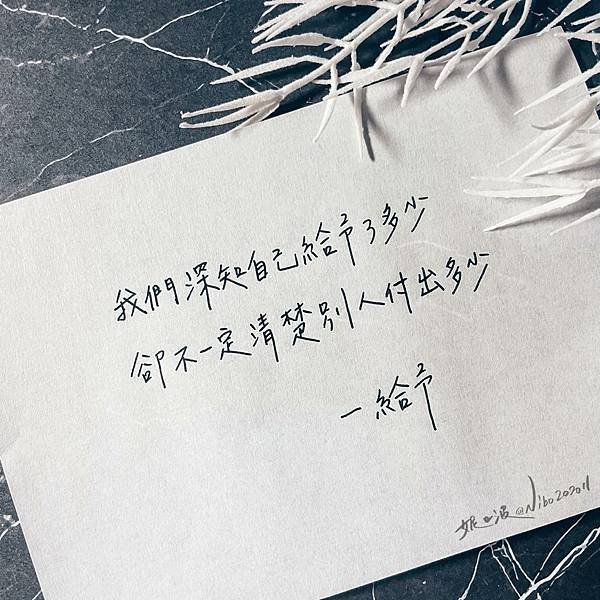 我們深知自己給予了多少
卻不一定清楚別人付出多少
—給予
妮波@Nibo202011